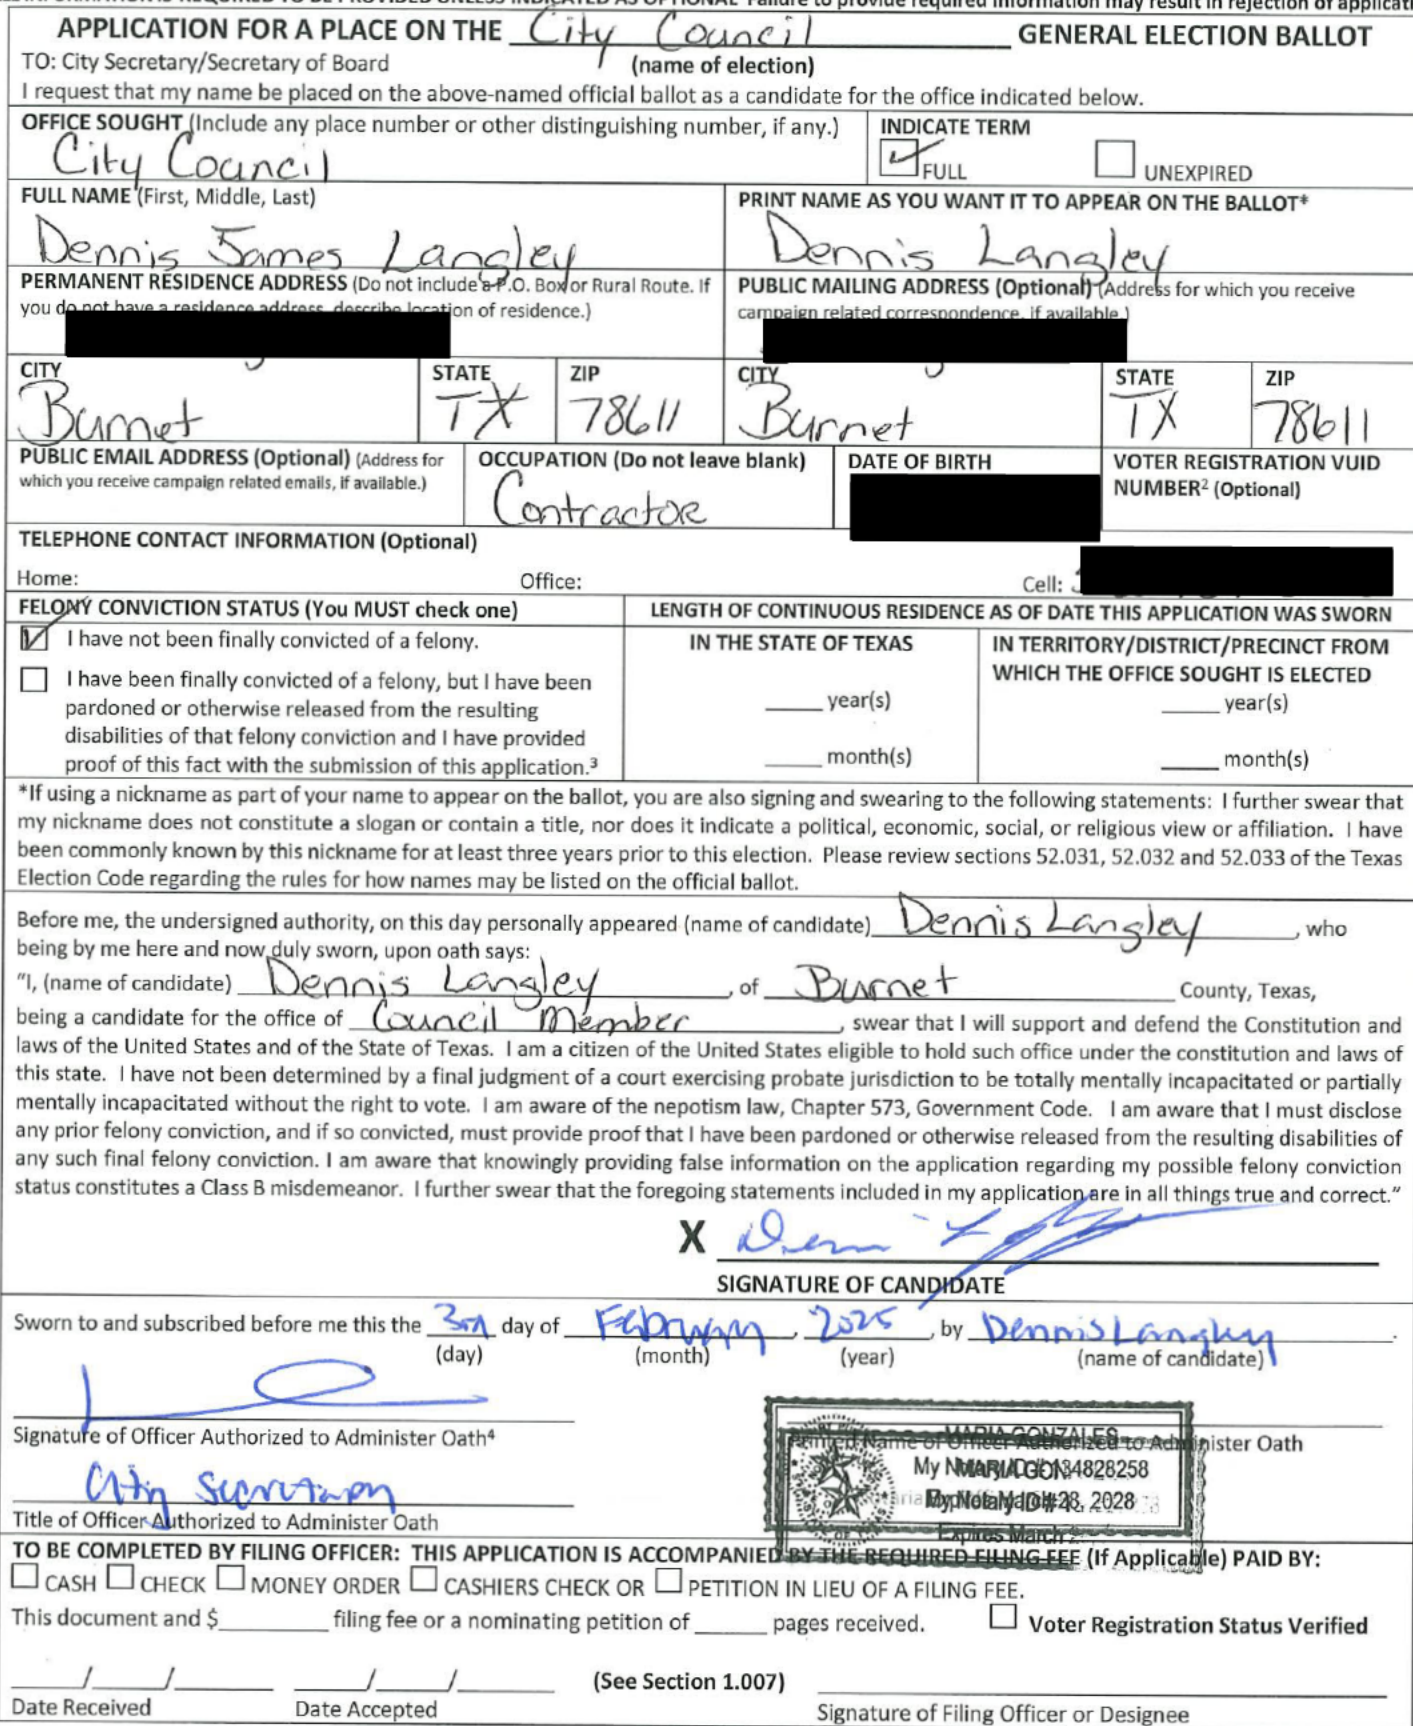 APPLICATION FOR A PLACE ON THE City Council GENERAL ELECTION BALLOT
TO: City Secretary/Secretary of Board (name of election)
I request that my name be placed on the above-named official ballot as a candidate for the office indicated below.
OFFICE SOUGHT (Include any place number or other distinguishing number, if any.) INDICATE TERM
City Council FULL UNEXPIRED
FULL NAME (First, Middle, Last) PRINT NAME AS YOU WANT IT TO APPEAR ON THE BALLOT*
Dennis James Langley Dennis Langley
PERMANENT RESIDENCE ADDRESS (Do not include a P.O. Box or Rural Route. If PUBLIC MAILING ADDRESS (Optional) (Address for which you receive
you do not have a residence address, describe location of residence.) campaign related correspondence, if available.)
CITY STATE ZIP CITY STATE ZIP
Burnet TX 78611 Burnet TX 78611
PUBLIC EMAIL ADDRESS (Optional) (Address for OCCUPATION (Do not leave blank) DATE OF BIRTH VOTER REGISTRATION VUID
which you receive campaign related emails, if available.) Contractor NUMBER² (Optional)
TELEPHONE CONTACT INFORMATION (Optional)
Home: Office: Cell:
FELONY CONVICTION STATUS (You MUST check one) LENGTH OF CONTINUOUS RESIDENCE AS OF DATE THIS APPLICATION WAS SWORN
I have not been finally convicted of a felony. IN THE STATE OF TEXAS IN TERRITORY/DISTRICT/PRECINCT FROM
WHICH THE OFFICE SOUGHT IS ELECTED
I have been finally convicted of a felony, but I have been
pardoned or otherwise released from the resulting ____ year(s) ____ year(s)
disabilities of that felony conviction and I have provided
proof of this fact with the submission of this application.³ ____ month(s) ____ month(s)
*If using a nickname as part of your name to appear on the ballot, you are also signing and swearing to the following statements: I further swear that
my nickname does not constitute a slogan or contain a title, nor does it indicate a political, economic, social, or religious view or affiliation. I have
been commonly known by this nickname for at least three years prior to this election. Please review sections 52.031, 52.032 and 52.033 of the Texas
Election Code regarding the rules for how names may be listed on the official ballot.
Before me, the undersigned authority, on this day personally appeared (name of candidate) Dennis Langley, who
being by me here and now duly sworn, upon oath says:
"I, (name of candidate) Dennis Langley, of Burnet County, Texas,
being a candidate for the office of Council Member, swear that I will support and defend the Constitution and
laws of the United States and of the State of Texas. I am a citizen of the United States eligible to hold such office under the constitution and laws of
this state. I have not been determined by a final judgment of a court exercising probate jurisdiction to be totally mentally incapacitated or partially
mentally incapacitated without the right to vote. I am aware of the nepotism law, Chapter 573, Government Code. I am aware that I must disclose
any prior felony conviction, and if so convicted, must provide proof that I have been pardoned or otherwise released from the resulting disabilities of
any such final felony conviction. I am aware that knowingly providing false information on the application regarding my possible felony conviction
status constitutes a Class B misdemeanor. I further swear that the foregoing statements included in my application are in all things true and correct."
X
SIGNATURE OF CANDIDATE
Sworn to and subscribed before me this the 3rd day of February, 2025, by Dennis Langley.
(day) (month) (year) (name of candidate)
MARIA GONZALES
Signature of Officer Authorized to Administer Oath⁴ Printed Name of Officer Authorized to Administer Oath
City Secretary
Title of Officer Authorized to Administer Oath
TO BE COMPLETED BY FILING OFFICER: THIS APPLICATION IS ACCOMPANIED BY THE REQUIRED FILING FEE (If Applicable) PAID BY:
CASH CHECK MONEY ORDER CASHIERS CHECK OR PETITION IN LIEU OF A FILING FEE.
This document and $____ filing fee or a nominating petition of ____ pages received. Voter Registration Status Verified
__/__/____ __/__/____ (See Section 1.007)
Date Received Date Accepted Signature of Filing Officer or Designee